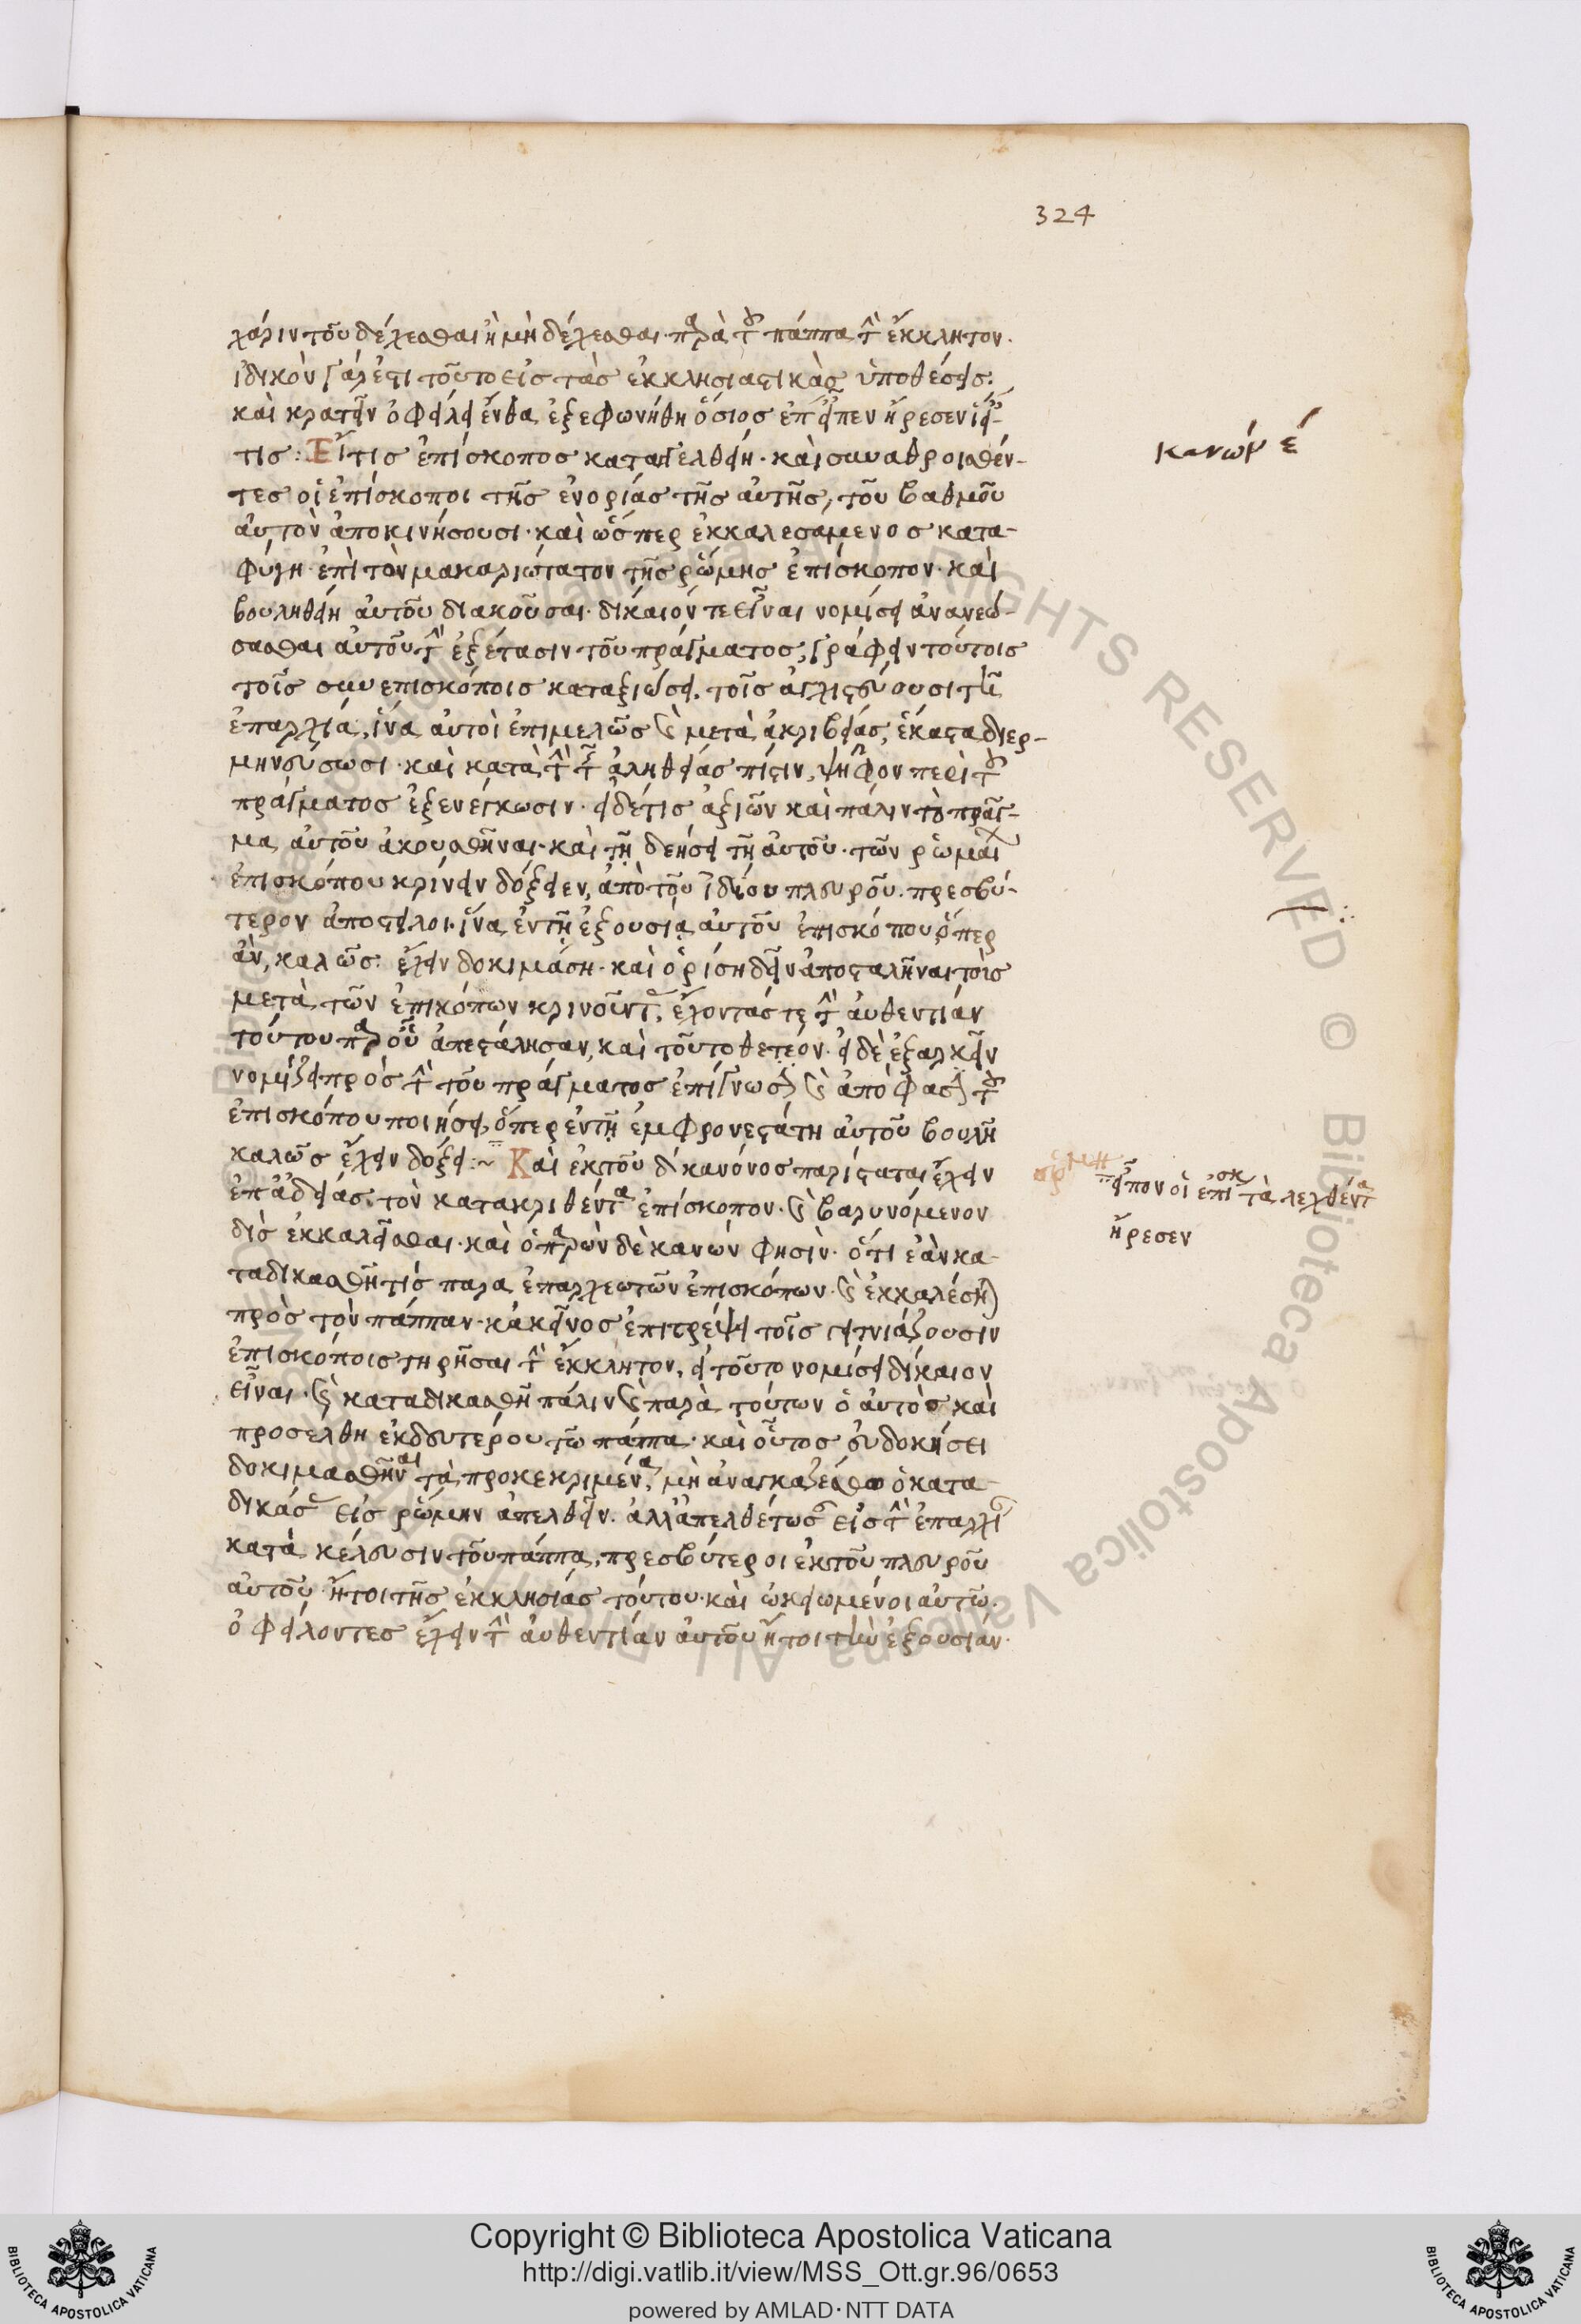 324
χάριν τοῦ δέχεσθαι ἢ μὴ δέχεσθαι· παρὰ τοῦ πάππα τὴν ἔκκλητον·
ἰδικὸν γάρ ἐστι τοῦτο εἰς τὰς ἐκκλησιαστικὰς ὑποθέσεις·
καὶ κρατεῖν ὀφείλει ἔνθα ἐξεφωνήθη ὅσιος ἐπ εἶπεν ἤρεσεν
τις: Εἴ τις ἐπίσκοπος καταγγελθείη· καὶ συναθροισθέν-
τες οἱ ἐπίσκοποι τῆς ἐνορίας τῆς αὐτῆς, τοῦ βαθμοῦ
αὐτὸν ἀποκινήσουσι· καὶ ὥσπερ ἐκκαλεσάμενος κατα-
φύγη· ἐπὶ τὸν μακαριώτατον τῆς ῥώμης ἐπίσκοπον· καὶ
βουληθείη αὐτοῦ διακοῦσαι· δίκαιόν τε εἶναι νομίσει ἀνανεώ-
σασθαι αὐτοῦ τὴν ἐξέτασιν τοῦ πράγματος, γράφειν τούτοις
τοῖς συνεπισκόποις καταξιώσει, τοῖς ἀγχιστεύουσι τῇ
ἐπαρχίᾳ, ἵνα αὐτοὶ ἐπιμελῶς καὶ μετὰ ἀκριβείας, ἕκαστα διερ-
μηνεύσωσι· καὶ κατὰ τὴν τῆς ἀληθείας πίστιν, ψῆφον περὶ τοῦ
πράγματος ἐξενέγκωσιν· εἰ δέ τις ἀξιῶν καὶ πάλιν τὸ πρᾶγ-
μα αὐτοῦ ἀκουσθῆναι· καὶ τῇ δεήσει τῇ αὐτοῦ· τῶν ῥωμαί
ἐπισκόπου κρίνειν δόξειεν, ἀπὸ τοῦ ἰδίου πλευροῦ· πρεσβύ-
τερον ἀποστείλοι· ἵνα ἐν τῇ ἐξουσίᾳ αὐτοῦ ἐπισκόπου ὅπερ
ἂν, καλῶς ἔχειν δοκιμάσῃ· καὶ ὁρίσῃ δεῖν ἀποσταλῆναι τοὺς
μετὰ τῶν ἐπικόπων κρινοῦντας, ἔχοντάς τε τὴν αὐθεντίαν
τούτου παρ' οὗ ἀπεστάλησαν, καὶ τοῦτο θετέον· εἰ δὲ ἐξαρκεῖν
νομίζει πρὸς τὴν τοῦ πράγματος ἐπίγνωσιν καὶ ἀπόφασιν τοῦ
ἐπισκόπου ποιήσει, ὅπερ ἐν τῇ ἐμφρονεστάτῃ αὐτοῦ βουλῇ
καλῶς ἔχειν δόξει:~ Καὶ ἐκ τοῦ δ κανόνος παρίσταται ἔχειν
ἐπ ἀδείας, τὸν κατακριθέντα ἐπίσκοπον· καὶ βαρυνόμενον
δὶς ἐκκαλεῖσθαι· καὶ ὁ παρὼν δὲ κανών φησὶν· ὅτι ἐὰν κα-
ταδικασθῇ τίς παρα ἐπαρχεωτῶν ἐπισκόπων· καὶ ἐκκαλέσηται
πρὸς τὸν πάππαν· κἀκεῖνος ἐπιτρέψει τοῖς γειτνιάζουσιν
ἐπισκόποις τηρῆσαι τὴν ἔκκλητον, εἰ τοῦτο νομίσει δίκαιον
εἶναι· καὶ καταδικασθῇ πάλιν καὶ παρὰ τούτων ὁ αὐτὸς καὶ
προσέλθη ἐκ δευτέρου τῶ πάππα· καὶ οὗτος εὐδοκήσει
δοκιμασθῆναι τὰ προκεκριμένα, μὴ ἀναγκαζέσθω ὁ κατα-
δικάσας εἰς ῥώμην ἀπελθεῖν· ἀλλ' ἀπελθέτωσαν εἰς τὴν ἐπαρχίαν
κατὰ κέλευσιν τοῦ πάππα, πρεσβύτεροι ἐκ τοῦ πλευροῦ
αὐτοῦ ἤτοι τῆς ἐκκλησίας τούτου· καὶ ὠκειωμένοι αὐτῶ·
ὀφείλοντες ἔχειν τὴν αὐθεντίαν αὐτοῦ ἤτοι τὴν ἐξουσίαν·
κανών έ
εἶπον οἱ ἐπίσκ τὰ λεχθέντα
ἤρεσεν
Copyright © Biblioteca Apostolica Vaticana
http://digi.vatlib.it/view/MSS_Ott.gr.96/0653
powered by AMLAD·NTT DATA